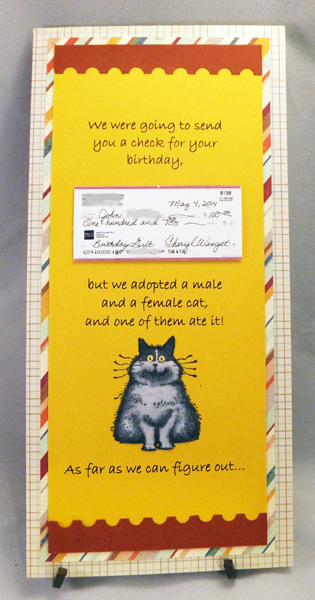 We were going to send
you a check for your
birthday,
8158
May 4, 2014
John
100.00
One hundred and
Birthday Gift
Cheryl
but we adopted a male
and a female cat,
and one of them ate it!
As far as we can figure out...